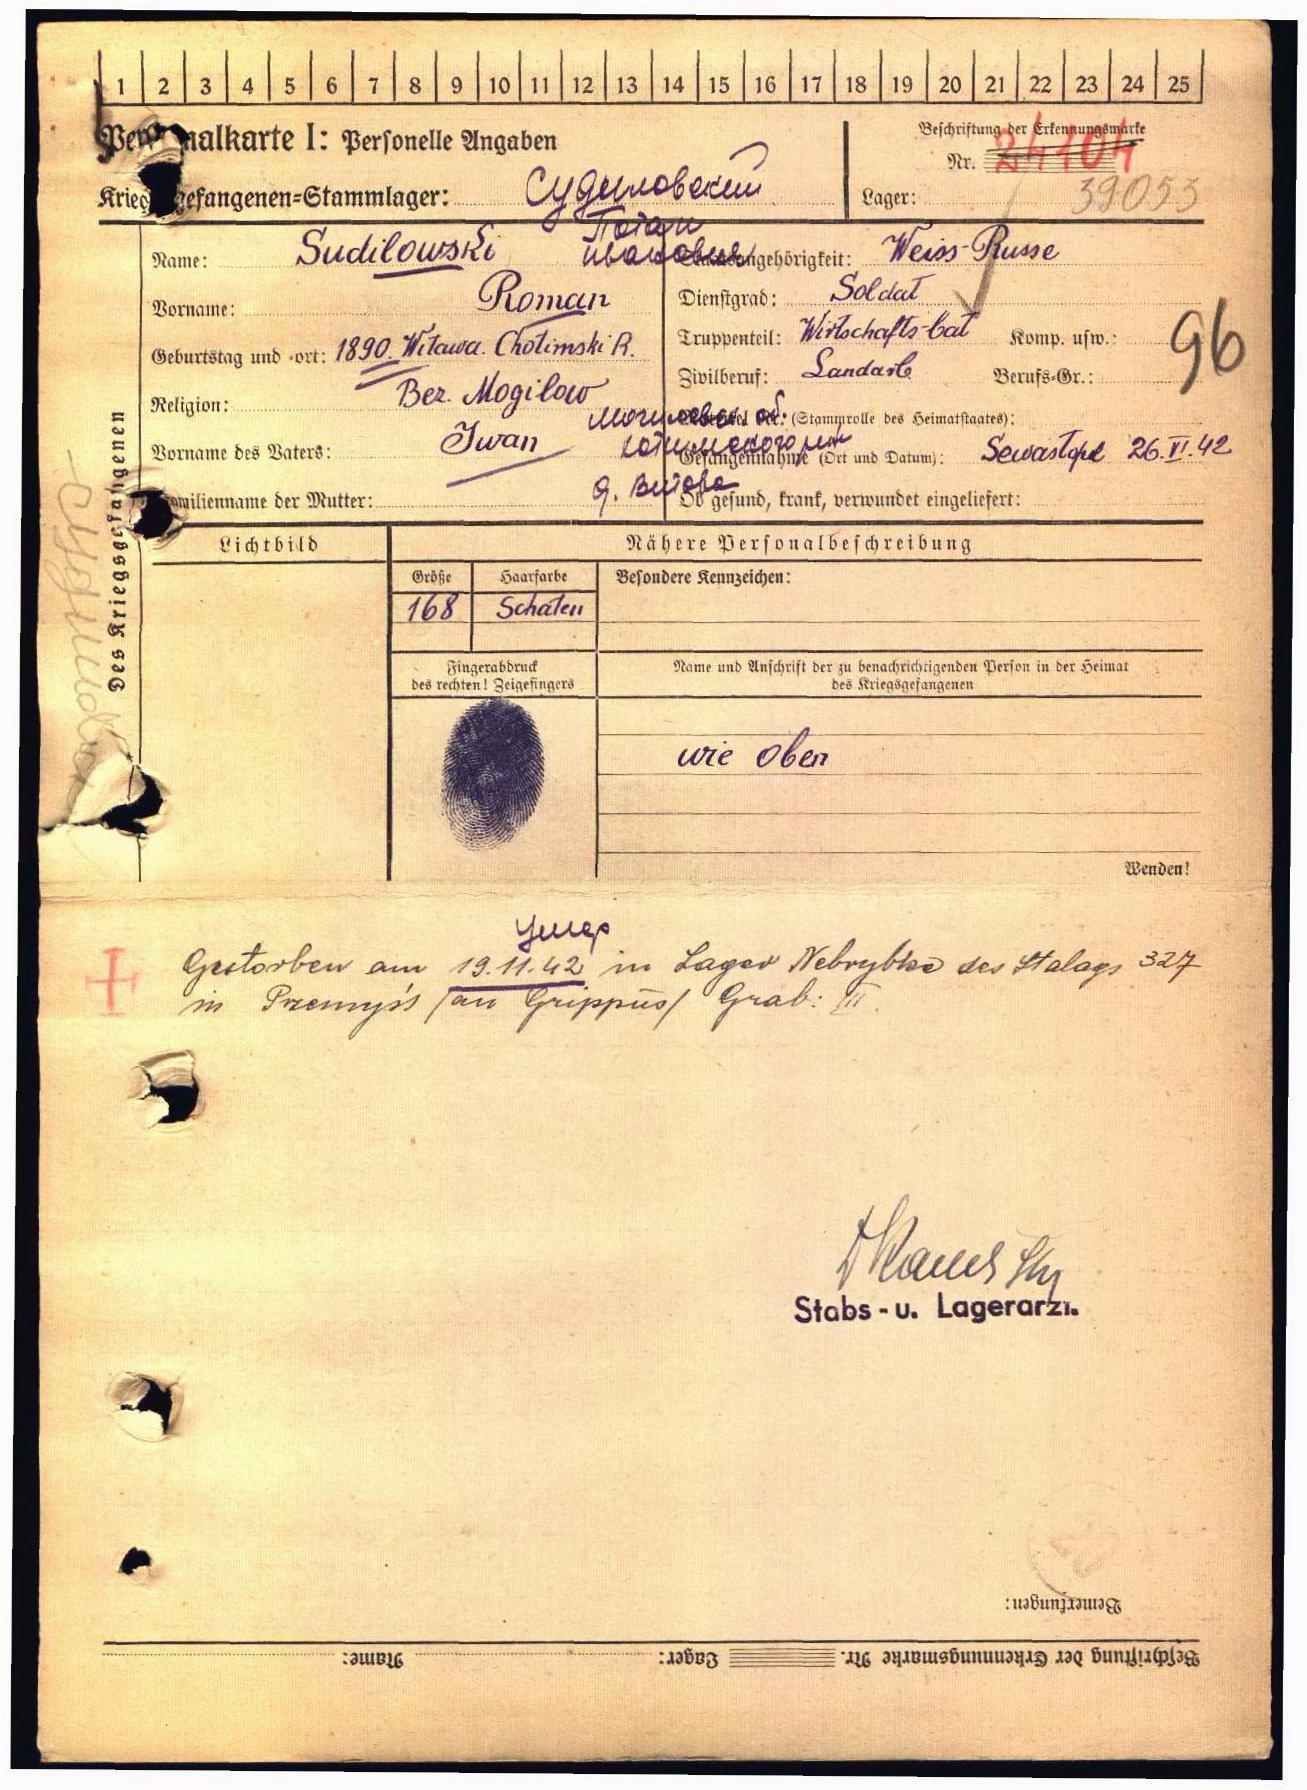 1 2 3 4 5 6 7 8 9 10 11 12 13 14 15 16 17 18 19 20 21 22 23 24 25
Personalkarte I: Personelle Angaben
Beschriftung der Erkennungsmarke
Nr. 24104
Kriegsgefangenen=Stammlager: Судиловский
Lager: 39053
Потап
Иванович
Name: Sudilowski
Staatsangehörigkeit: Weiss-Russe
Vorname: Roman
Dienstgrad: Soldat
Truppenteil: Wirtschafts-bat Komp. usw.:
96
Geburtstag und -ort: 1890. Witawa. Chotimski R.
Zivilberuf: Landarb Berufs-Gr.:
Bez. Mogilow
Religion:
Могилевск. об.
(Stammrolle des Heimatstaates):
Хотимского р-н
Vorname des Vaters: Iwan
Gefangennahme (Ort und Datum): Sewastopol 26.VI.42
д. Витава
Familienname der Mutter:
Ob gesund, krank, verwundet eingeliefert:
Des Kriegsgefangenen
Lichtbild
Nähere Personalbeschreibung
Größe Haarfarbe Besondere Kennzeichen:
168 Schaten
Fingerabdruck
des rechten! Zeigefingers
Name und Anschrift der zu benachrichtigenden Person in der Heimat
des Kriegsgefangenen
wie oben
Wenden!
Умер
Gestorben am 19.11.42 in Lager Nebrybka des Stalags 327
in Przemyśl /an Grippus/ Grab: III.
Stabs - u. Lagerarzt.
Bemerkungen:
Beschriftung der Erkennungsmarke Nr. Lager: Name: